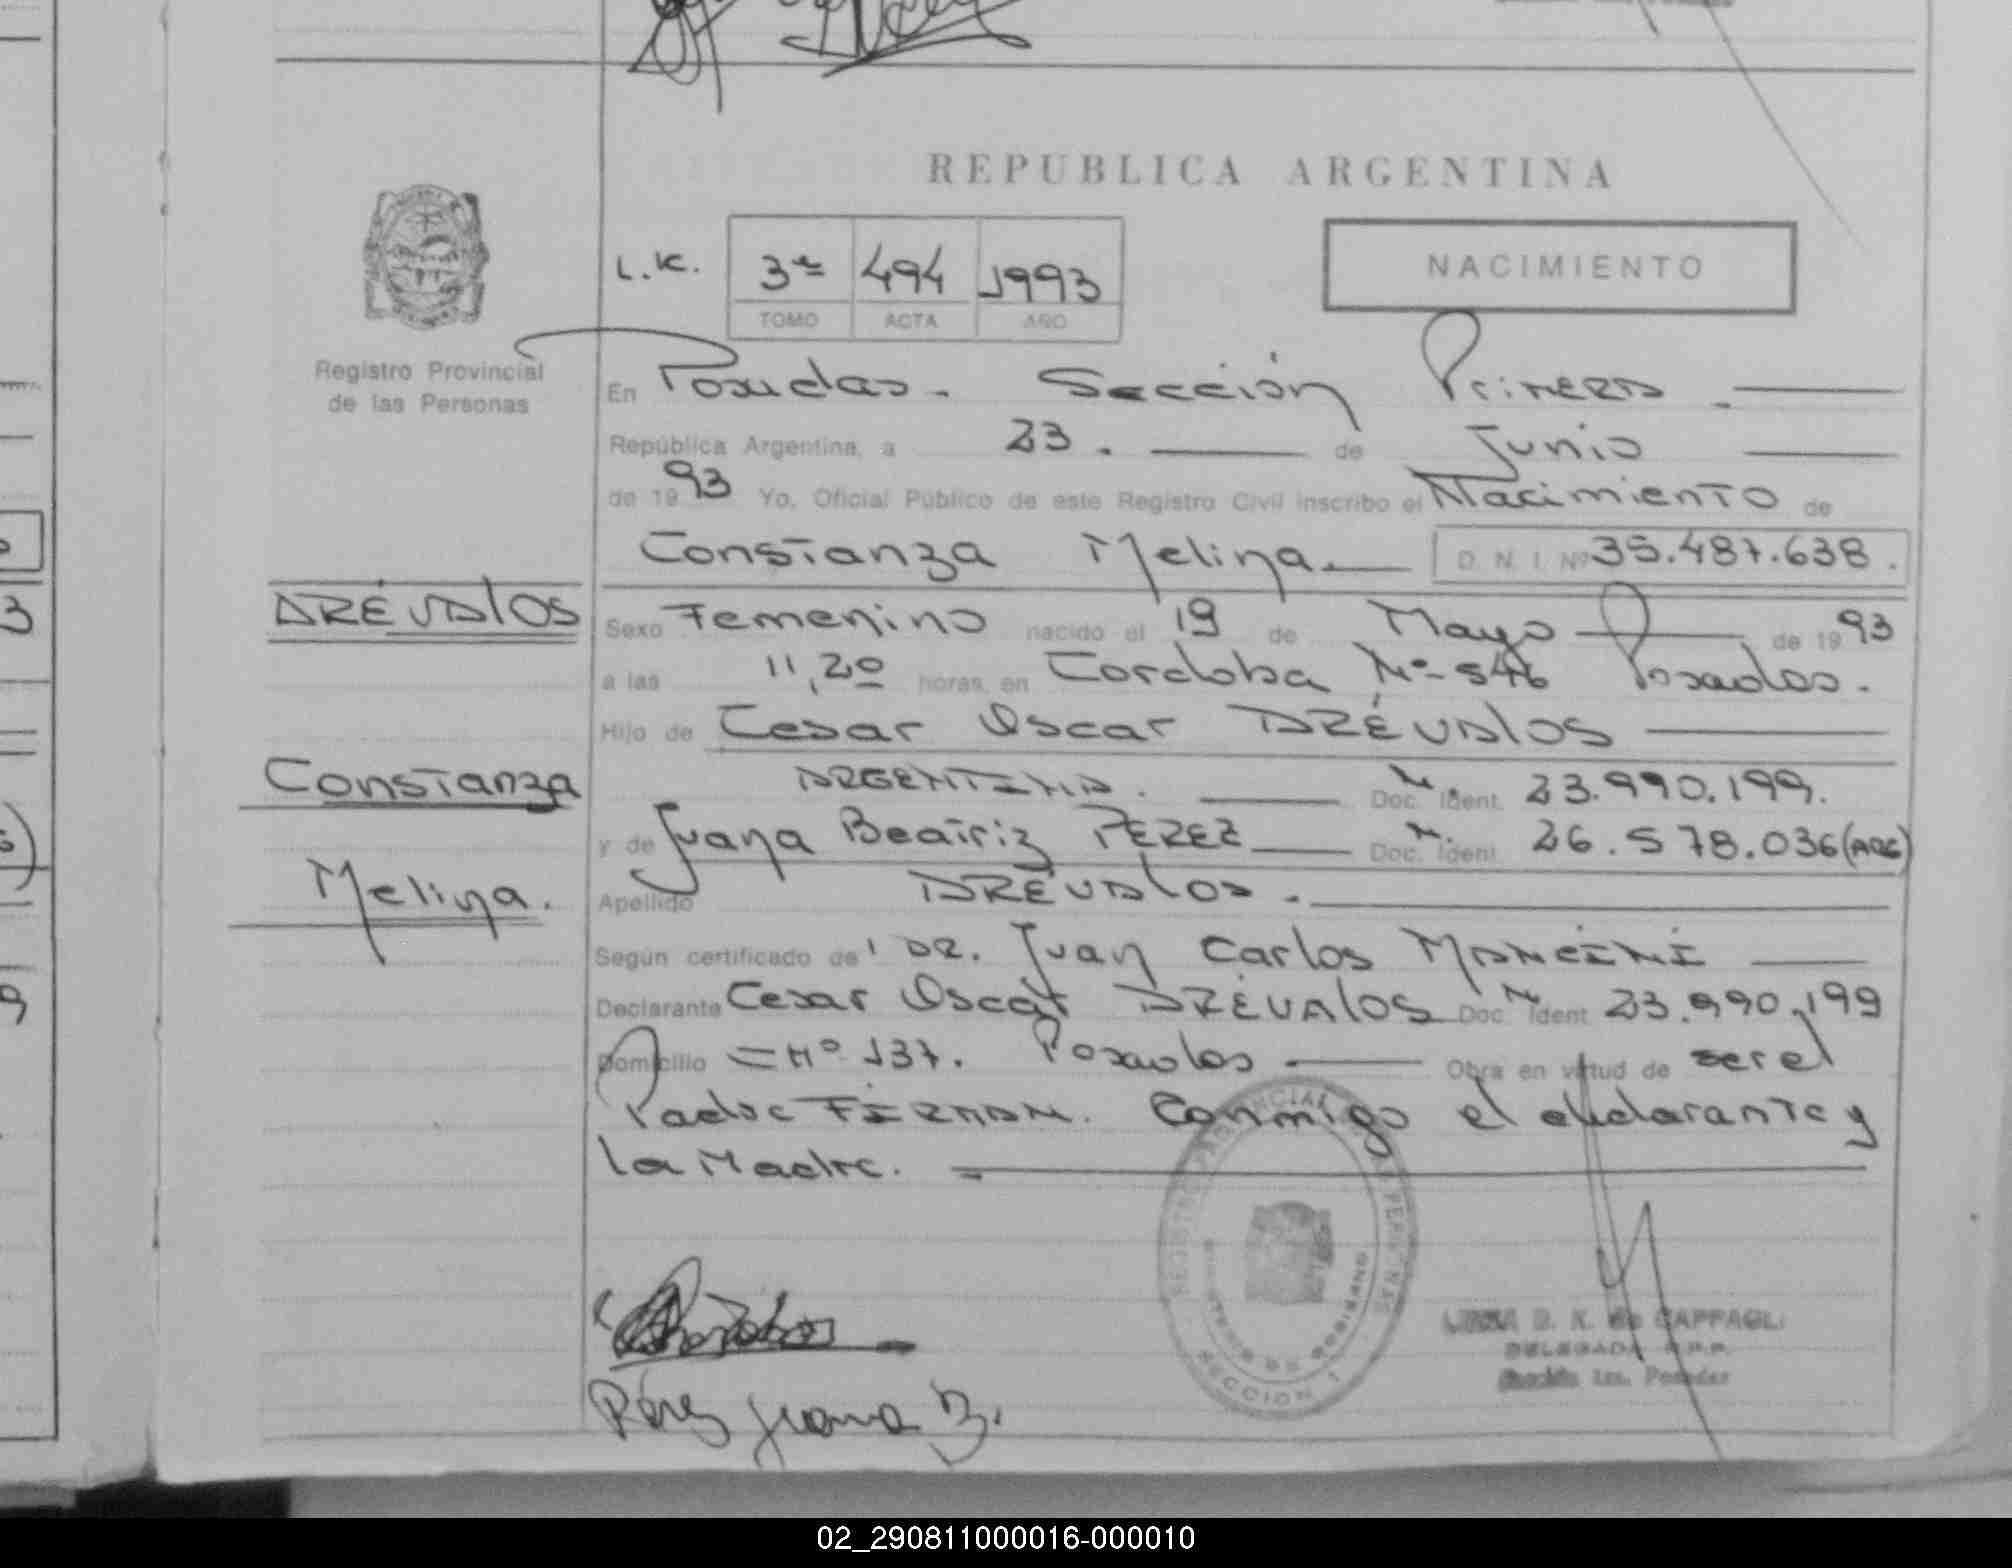 REPUBLICA ARGENTINA
NACIMIENTO
L.K. 3º 494 1993
TOMO ACTA AÑO
Registro Provincial
de las Personas
En Posadas. Sección Primera.
República Argentina, a 23. de Junio
de 1993 Yo, Oficial Público de este Registro Civil inscribo el Nacimiento de
Constanza Melina. D. N. I. Nº 35.487.638.
ARÉVALOS
Constanza
Melina.
Sexo Femenino nacido el 19 de Mayo de 1993
a las 11,20 horas, en Cordoba Nº 546 Posadas.
Hijo de Cesar Oscar ARÉVALOS
ARGENTINA. Doc. Ident. 23.990.199.
y de Juana Beatriz PEREZ Doc. Ident. 26.578.036 (ARG)
Apellido ARÉVALOS.
Según certificado de DR. Juan Carlos MANCINI
Declarante Cesar Oscar ARÉVALOS Doc. Ident 23.990.199
Domicilio Nº 137. Posadas Obra en virtud de ser el
Padre FIRMAN. Conmigo el declarante y
la Madre.
REGISTRO PROVINCIAL PERSONAS
SECCION 1
Pérez Juana B.
de CAPPAGLI
DELEGADA R.P.P.
Sección 1ra. Posadas
02_290811000016-000010